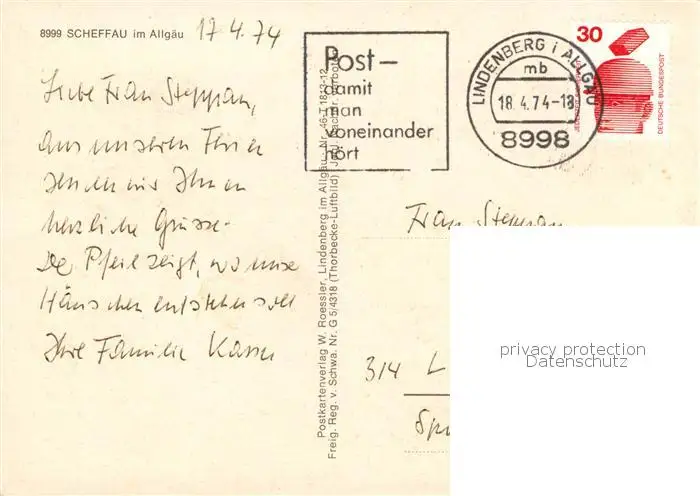 8999 SCHEFFAU im Allgäu
17.4.74
Liebe Frau Steppan,
aus unseren Ferien
senden wir Ihnen
herzliche Grüsse.
Der Pfeil zeigt, wo unser
Häuschen entstehen soll
Ihre Familie
Postkartenverlag W. Roessler, Lindenberg im Allgäu, Nr. 46-T 1813-12
Freig. Reg. v. Schwa. Nr. G 5/4318 (Thorbecke-Luftbild)
Post–
damit
man
voneinander
hört
LINDENBERG i ALLGÄU
mb
18.4.74-18
8998
30
DEUTSCHE BUNDESPOST
Frau Steppan
314 L
privacy protection
Datenschutz